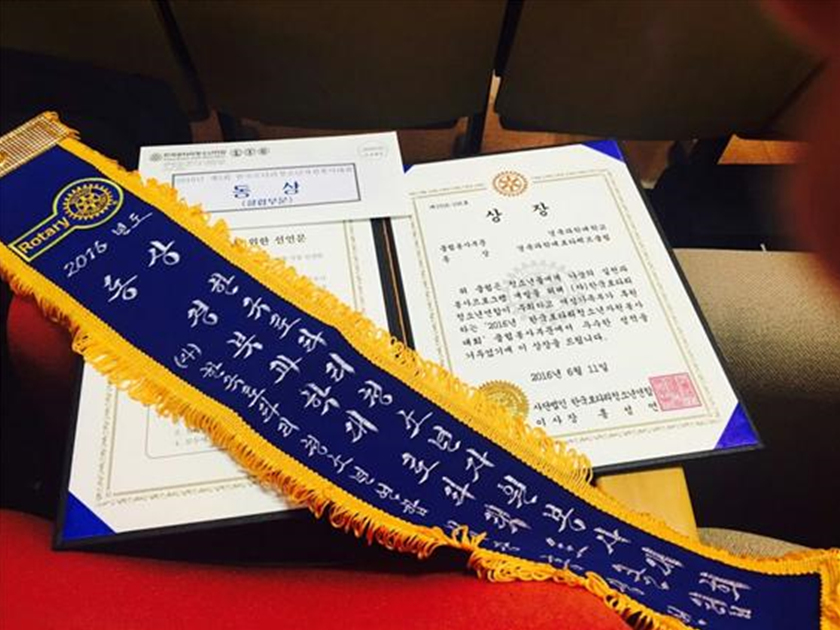 Rotary
2016 년도
동 상
한국로타리청소년자원봉사대회
경북과학대 로타랙트클럽
(사) 한국로타리청소년연합
2016년 제1회 한국로타리청소년자원봉사대회
동 상
(클럽부문)
위한 선언문
상 장
클럽봉사부문 경북과학대학교
동 상 경북과학대로타랙트클럽
위 클럽은 청소년들에게 나눔의 실천과
봉사프로그램 개발을 위해 (사)한국로타리
청소년연합이 주최하고 여성가족부가 후원
하는 '2016년 한국로타리청소년자원봉사
대회' 클럽봉사부문에서 우수한 성적을
거두었기에 이 상장을 드립니다.
2016년 6월 11일
사단법인 한국로타리청소년연합
이 사 장 홍 성 연